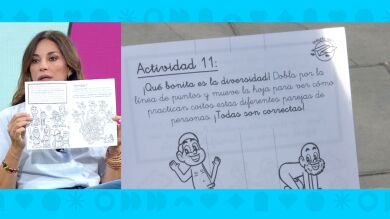 Actividad 11:
¡Qué bonita es la diversidad! Dobla por la
línea de puntos y mueve la hoja para ver cómo
practican coitos estas diferentes parejas de
personas. ¡Todas son correctas!